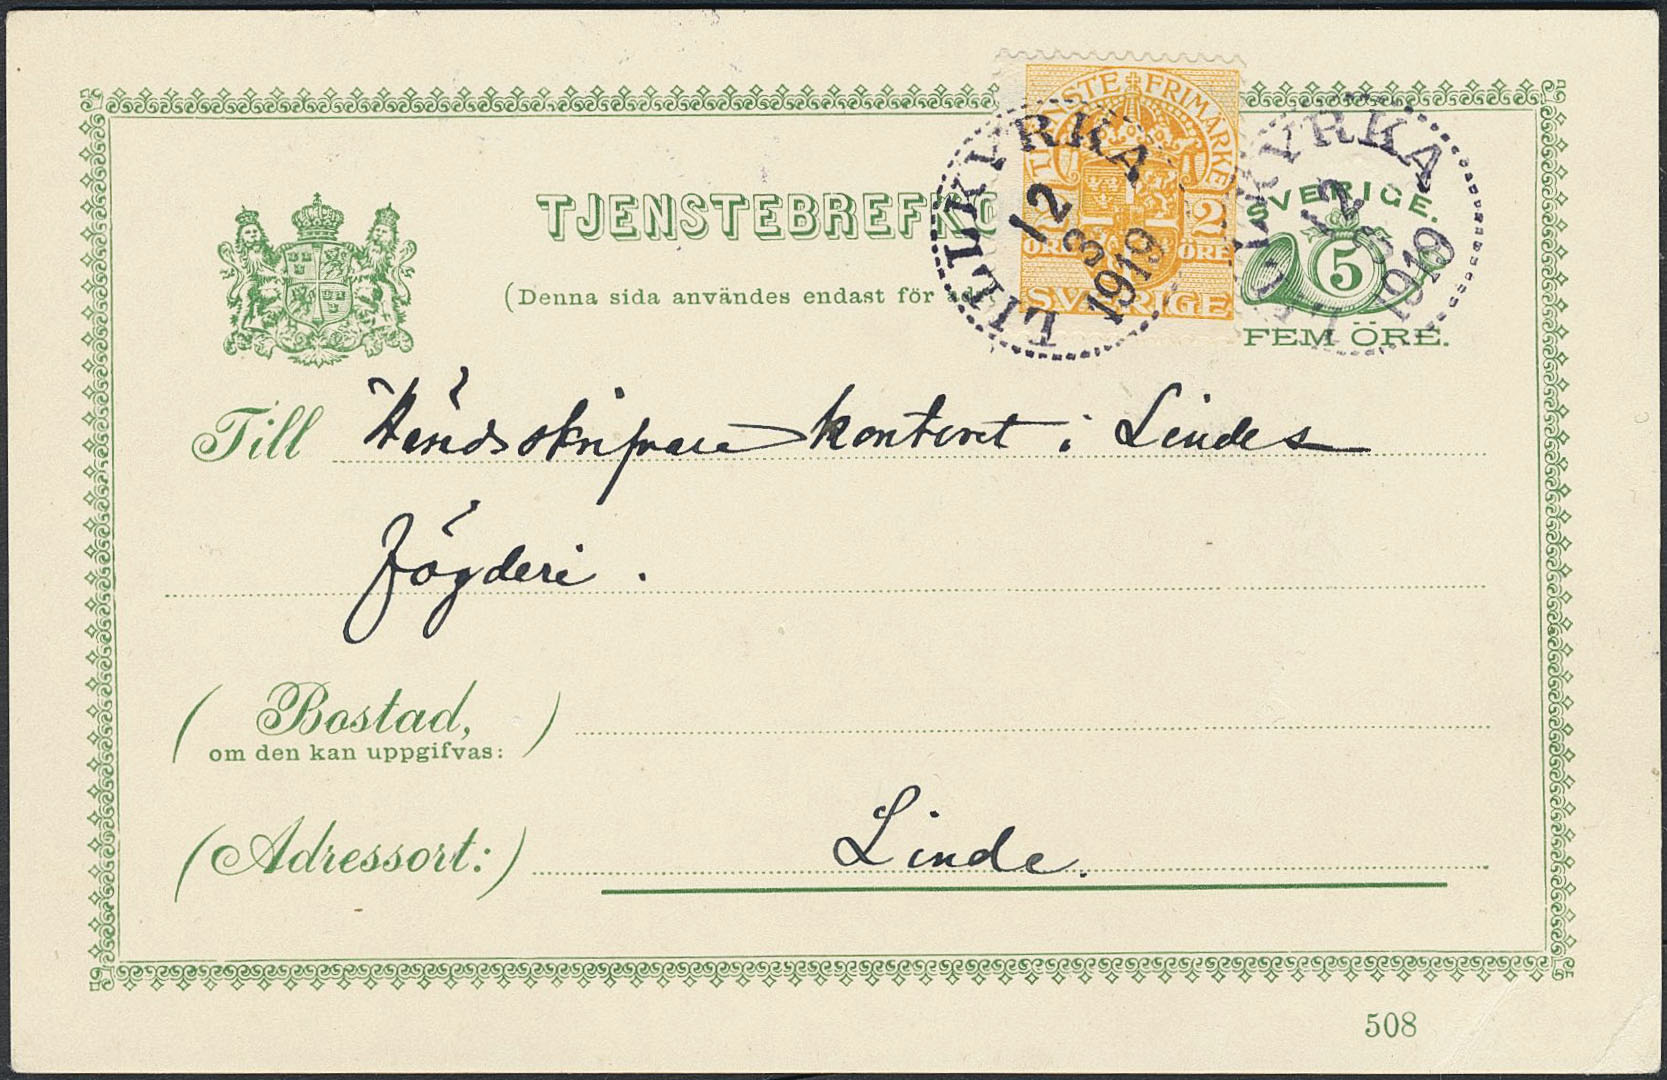 TJENSTE FRIMÄRKE
2 2
ÖRE ÖRE
SVERIGE
LILLKYRKA
12
3
1919
LILLKYRKA
12
3
1919
SVERIGE.
5
FEM ÖRE.
TJENSTEBREFKO
(Denna sida användes endast för
Till Häradsskrifvare kontoret i Lindes
fögderi.
(Bostad,
om den kan uppgifvas:)
(Adressort:) Linde.
508